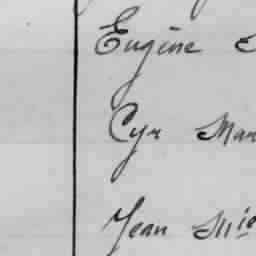 Eugène
Cyr Mar
Jean Mie